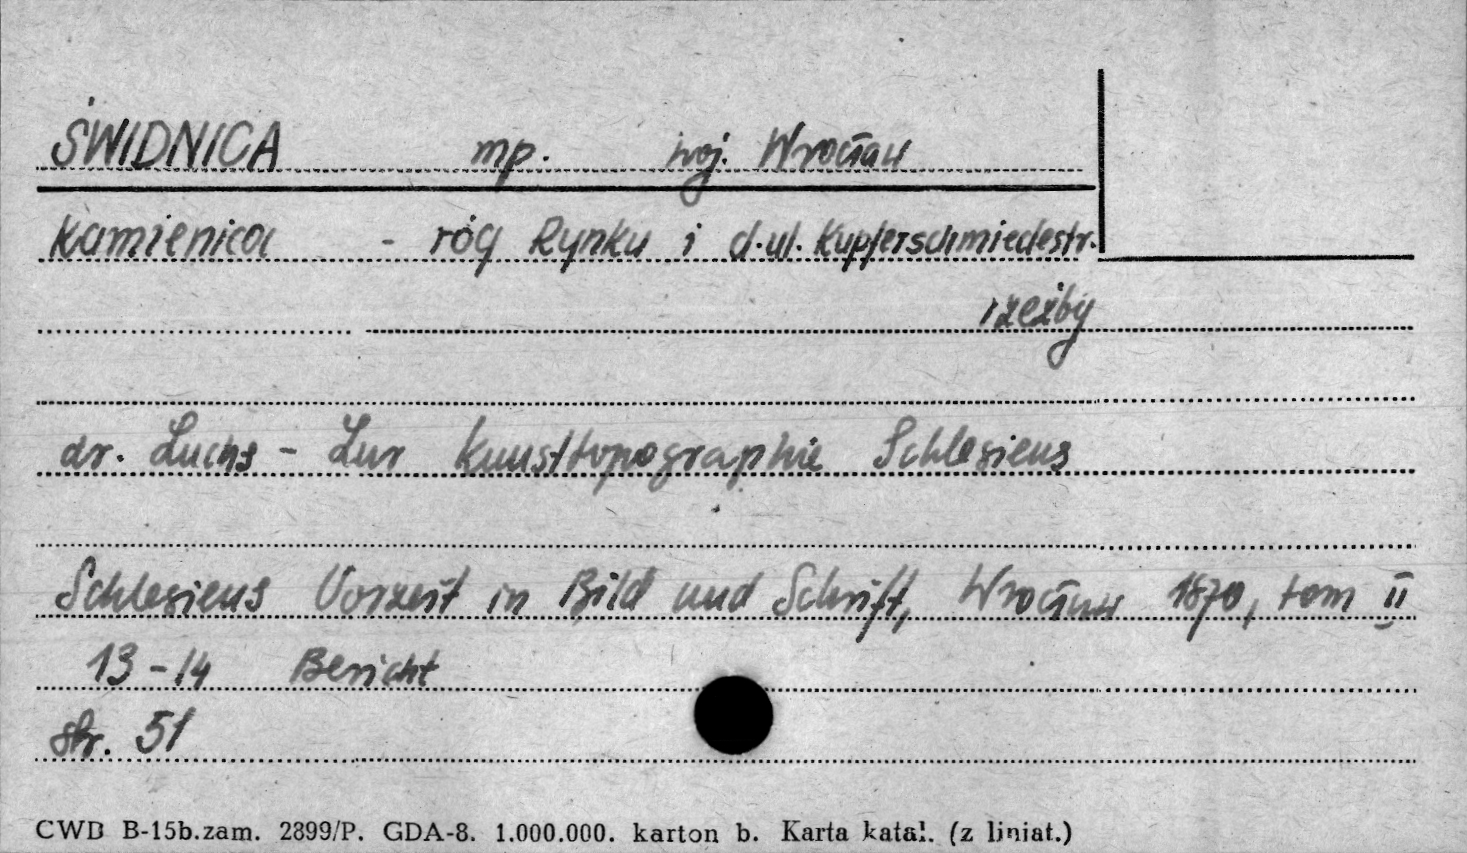 ŚWIDNICA mp. woj. Wrocław
kamienica - róg Rynku i d.ul. Kupferschmiedestr.
rzeźby
dr. Luchs - Zur Kunsttopographie Schlesiens
Schlesiens Vorzeit in Bild und Schrift, Wrocław 1870, tom II
13-14 Bericht
str. 51
CWD B-15b.zam. 2899/P. GDA-8. 1.000.000. karton b. Karta katal. (z liniat.)